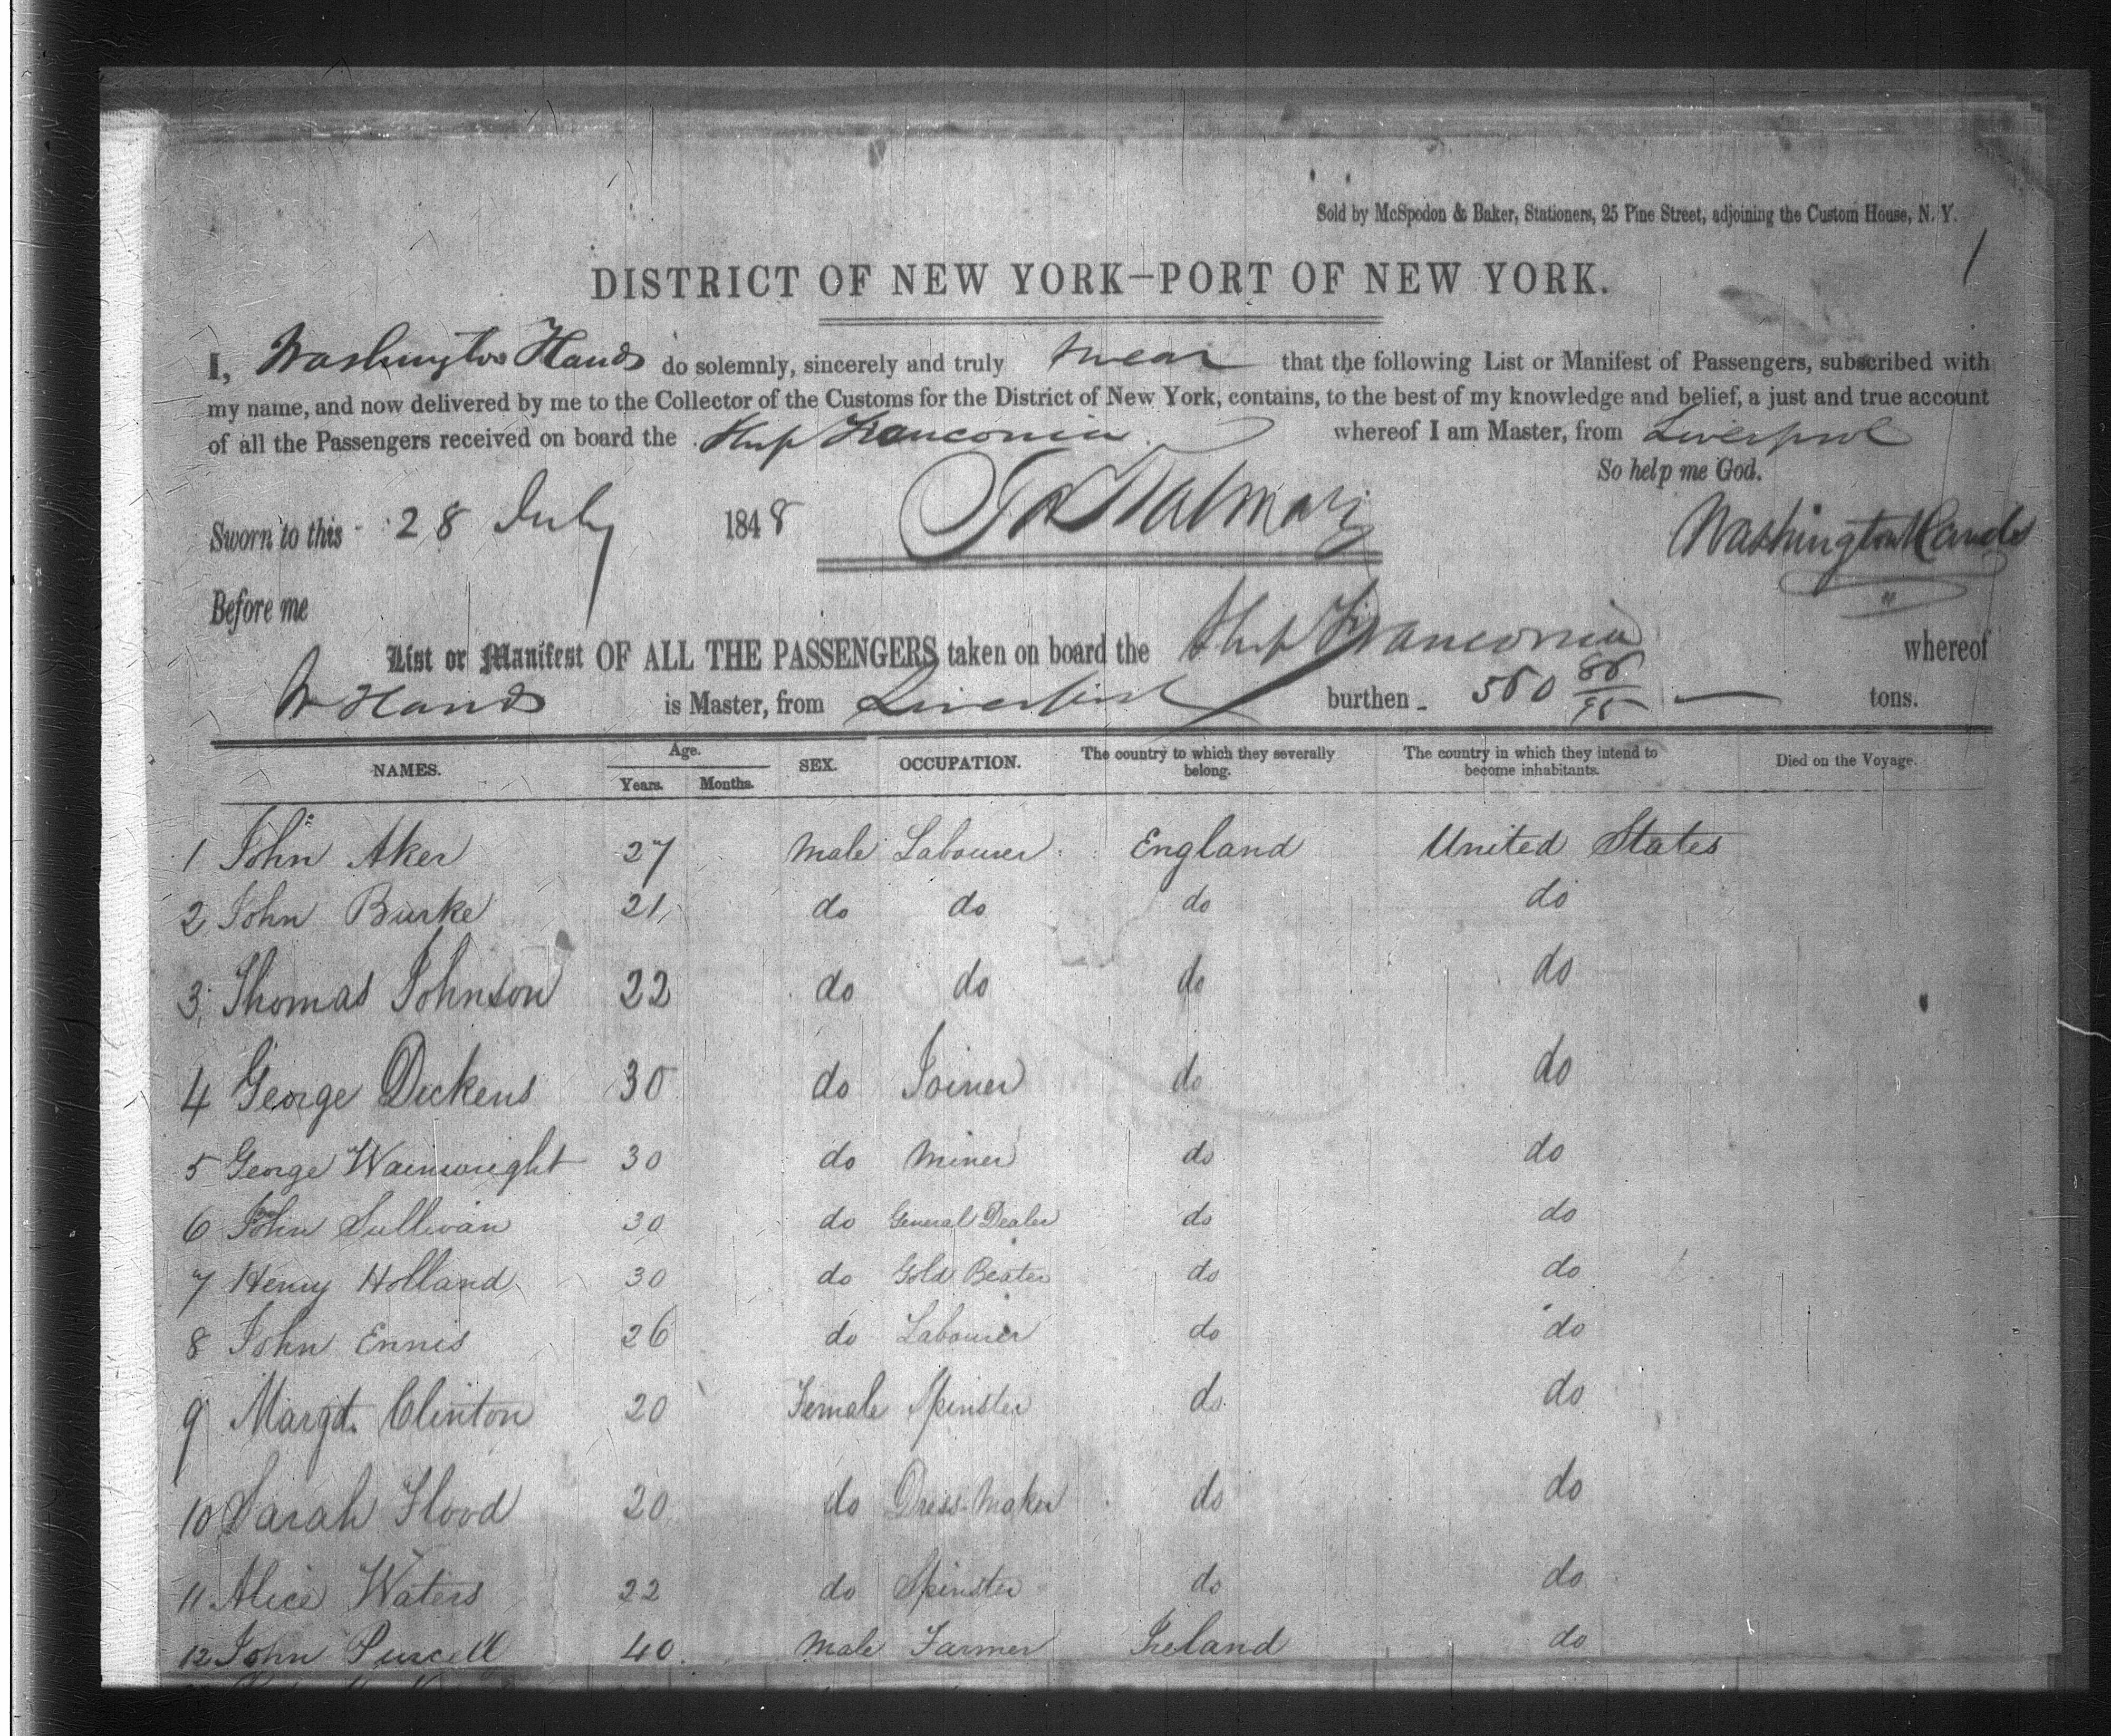 Sold by McSpedon & Baker, Stationers, 25 Pine Street, adjoining the Custom House, N. Y.
1
DISTRICT OF NEW YORK—PORT OF NEW YORK.
I, Washington Hands do solemnly, sincerely and truly swear that the following List or Manifest of Passengers, subscribed with
my name, and now delivered by me to the Collector of the Customs for the District of New York, contains, to the best of my knowledge and belief, a just and true account
of all the Passengers received on board the Ship Franconia whereof I am Master, from Liverpool
So help me God.
Sworn to this 28 July 1848 Washington Hands
Before me
List or Manifest OF ALL THE PASSENGERS taken on board the Ship Franconia whereof
W Hands is Master, from Liverpool burthen tons.
NAMES. Age. Years. Months. SEX. OCCUPATION. The country to which they severally belong. The country in which they intend to become inhabitants. Died on the Voyage.
1 John Aker 27 Male Labourer England United States
2 John Burke 21 do do do do
3 Thomas Johnson 22 do do do do
4 George Dickens 30 do Joiner do do
5 George Wainwright 30 do Miner do do
6 John Sullivan 30 do General Dealer do do
7 Henry Holland 30 do Gold Beater do do
8 John Ennis 26 do Labourer do do
9 Margt. Clinton 20 Female Spinster do do
10 Sarah Flood 20 do Dress-Maker do do
11 Alice Waters 22 do Spinster do do
12 John Purcell 40 Male Farmer Ireland do